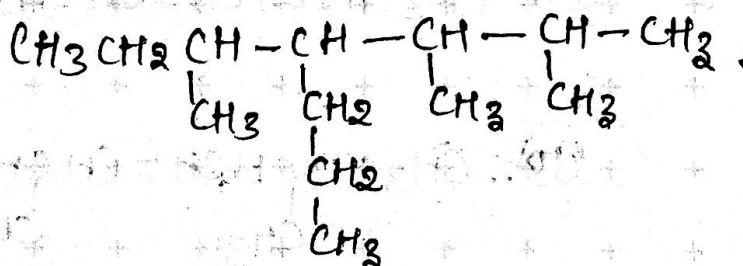 CH3 CH2 CH - CH - CH - CH - CH3.
CH3 CH2 CH3 CH3
CH2
CH3